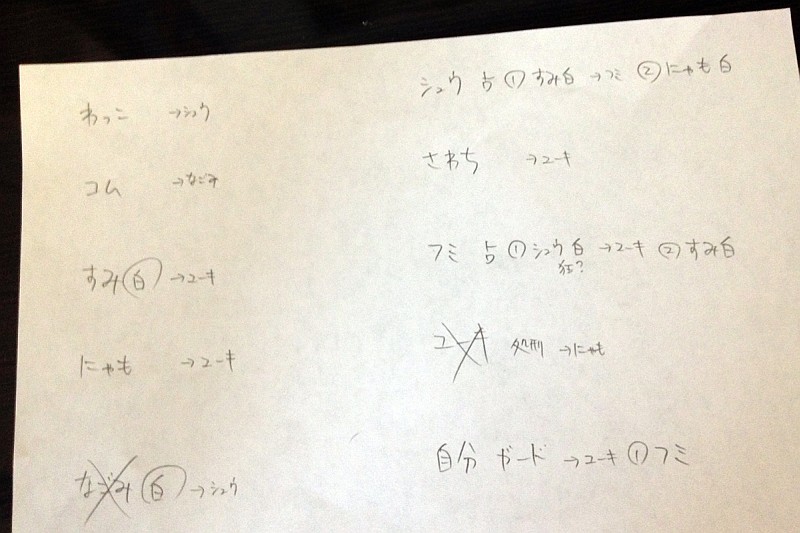 わっこ →シュウ
コム →なごみ
すみ 白 →ユーキ
にゃも →ユーキ
なごみ 白 →シュウ
シュウ 占 ① すみ白 →フミ ② にゃも 白
さわち →ユーキ
フミ 占 ① シュウ 白 →ユーキ ② すみ白
狂?
ユーキ 処刑 →にゃも
自分 ガード →ユーキ ① フミ